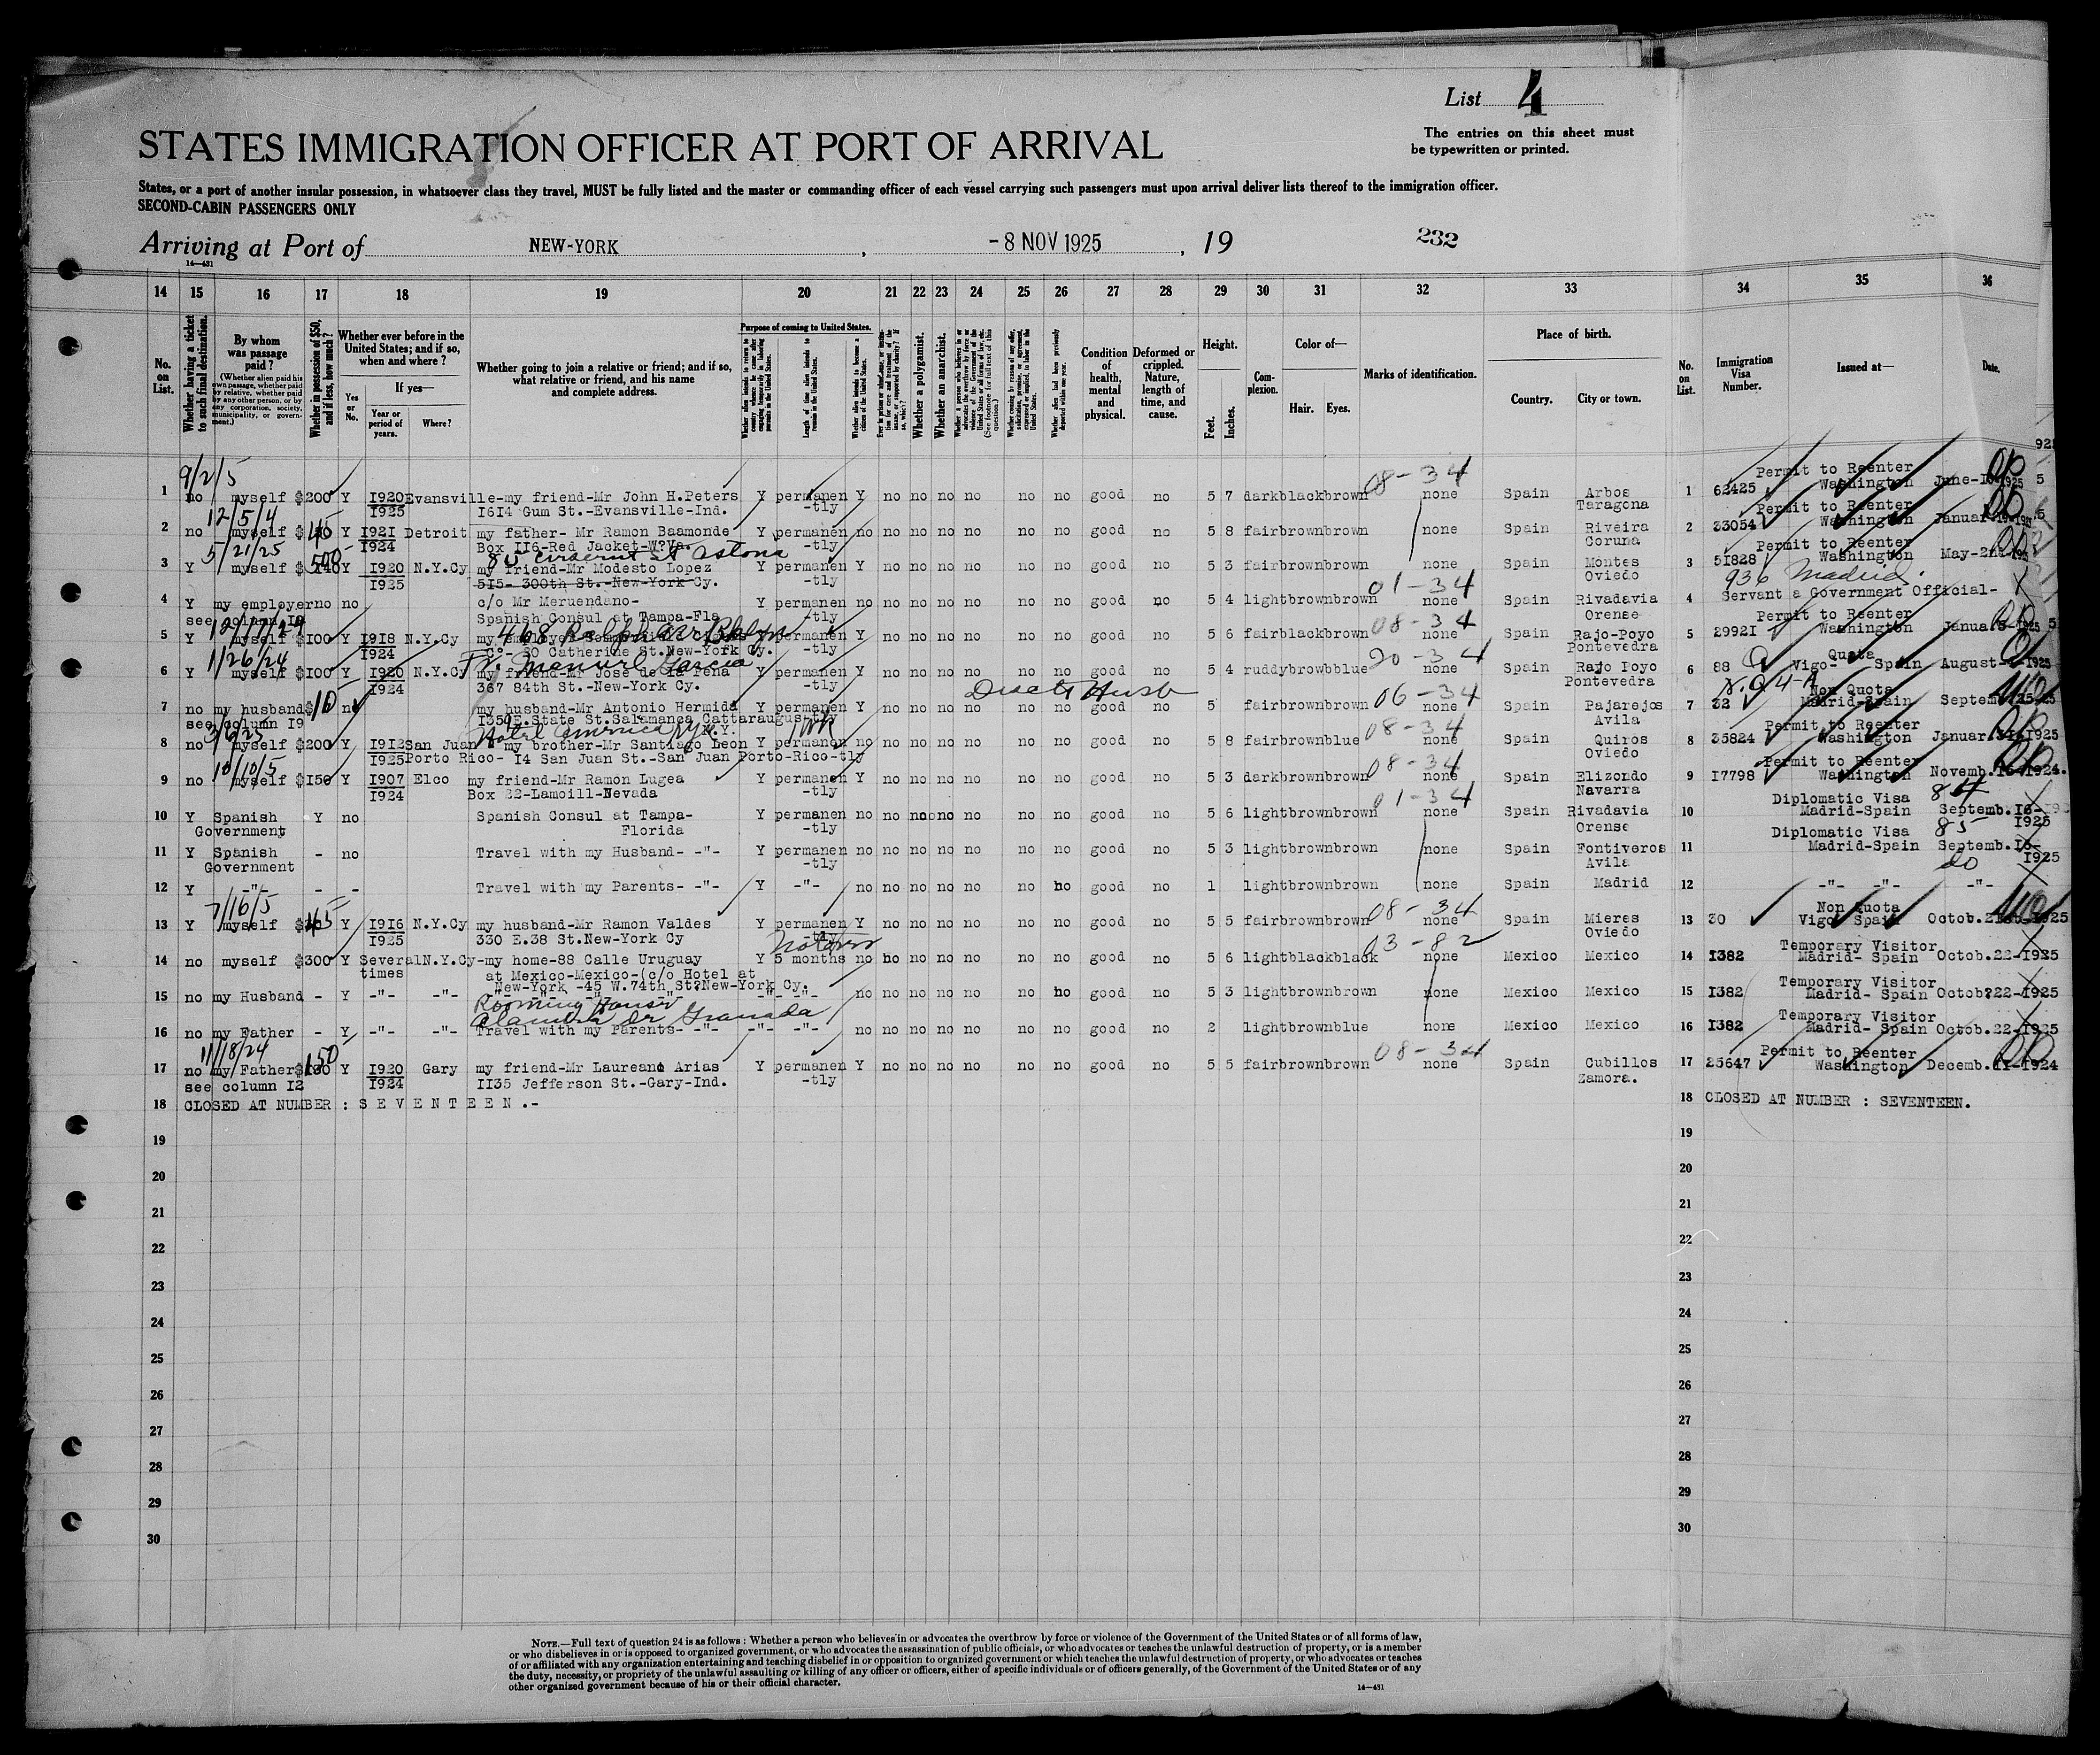 List 4
The entries on this sheet must
be typewritten or printed.
STATES IMMIGRATION OFFICER AT PORT OF ARRIVAL
States, or a port of another insular possession, in whatsoever class they travel, MUST be fully listed and the master or commanding officer of each vessel carrying such passengers must upon arrival deliver lists thereof to the immigration officer.
SECOND-CABIN PASSENGERS ONLY
Arriving at Port of NEW-YORK, -8 NOV 1925, 19 232
14—431
14 15 16 17 18 19 20 21 22 23 24 25 26 27 28 29 30 31 32 33 34 35 36
No. on List.
Whether having a ticket to such final destination.
By whom was passage paid?
(Whether alien paid his own passage, whether paid by relative, whether paid by any other person, or by any corporation, society, municipality, or government.)
Whether in possession of $50, and if less, how much?
Whether ever before in the United States; and if so, when and where?
If yes—
Yes or No.
Year or period of years.
Where?
Whether going to join a relative or friend; and if so, what relative or friend, and his name and complete address.
Purpose of coming to United States.
Length of time alien intends to remain in the United States.
Whether alien intends to become a citizen of the United States.
Whether a polygamist.
Whether an anarchist.
Condition of health, mental and physical.
Deformed or crippled. Nature, length of time, and cause.
Height.
Feet. Inches.
Complexion.
Color of—
Hair. Eyes.
Marks of identification.
Place of birth.
Country. City or town.
No. on List.
Immigration Visa Number.
Issued at—
Date.
9/2/5 08-34 Permit to Reenter
1 no myself $200 Y 1920 Evansville-my friend-Mr John H.Peters Y permanen Y no no no no no no good no 5 7 dark black brown none Spain Arbos 1 62425 Washington June-
1925 1614 Gum St.-Evansville-Ind. -tly Taragona
12/5/4 Permit to Reenter
2 no myself Y 1921 Detroit my father- Mr Ramon Baamonde Y permanen no no no no no no no good no 5 8 fair brown brown none Spain Riveira 2 33054 Washington Januar
1924 Box 116-Red Jacket-W?Va. -tly Coruna
5/21/25 500 Permit to Reenter
3 Y myself $140 Y 1920 N.Y.Cy my friend-Mr Modesto Lopez Y permanen Y no no no no no no good no 5 3 fair brown brown none Spain Montes 3 51828 Washington May-
1925 515- 300th St.-New-York Cy. -tly Oviedo
01-34 936 Madrid
4 Y my employer no no c/o Mr Meruendano- Y permanen no no no no no no no good no 5 4 light brown brown none Spain Rivadavia 4 Servant a Government Official-
see column 19 Spanish Consul at Tampa-Fla -tly Orense
12/17/24 468 08-34 Permit to Reenter
5 Y myself $100 Y 1918 N.Y.Cy my Y permanen Y no no no no no no good no 5 6 fair black brown none Spain Rajo-Poyo 5 29921 Washington Janua
1924 C°- 80 Catherine St.New-York Cy. -tly Pontevedra
1/26/24 Fr. Manuel Garcia 20-34 Quota
6 Y myself $100 Y 1920 N.Y.Cy my friend-Mr Jose de la Pena Y permanen Y no no no no no no good no 5 4 ruddy brown blue none Spain Rajo Poyo 6 88 Vigo- Spain August-
1924 367 84th St.-New-York Cy. -tly Pontevedra
06-34 N.Q 4-A Non Quota
7 no my husband $10 no my husband-Mr Antonio Hermida Y permanen Y no no no no no no good no 5 fair brown brown none Spain Pajarejos 7 32 Madrid-Spain Septem
see column 19 1359 E.State St.Salamanca Cattaraugus-tly Avila
Hotel America N.Y. 08-34 Permit to Reenter
8 no myself $200 Y 1912 San Juan- my brother-Mr Santiago Leon Y permanen no no no no no no no good no 5 8 fair brown blue none Spain Quiros 8 35824 Washington Januar. 1925
1925 Porto Rico- 14 San Juan St.-San Juan Porto-Rico-tly Oviedo
10/10/5 08-34 Permit to Reenter
9 no myself $150 Y 1907 Elco my friend-Mr Ramon Lugea Y permanen Y no no no no no no good no 5 3 dark brown brown none Spain Elizondo 9 17798 Washington Novemb.15-1924.
1924 Box 22-Lamoill-Nevada -tly Navarra
01-34 Diplomatic Visa 84
10 Y Spanish Y no Spanish Consul at Tampa- Y permanen no no no no no no no good no 5 6 light brown brown none Spain Rivadavia 10 Madrid-Spain Septemb.16-
Government Florida -tly Orense 1925
Diplomatic Visa 85
11 Y Spanish - no Travel with my Husband- -"- Y permanen no no no no no no no good no 5 3 light brown brown none Spain Fontiveros 11 Madrid-Spain Septemb.16-
Government -tly Avila 1925
do
12 Y -"- - - Travel with my Parents- -"- Y -"- no no no no no no no good no 1 light brown brown none Spain Madrid 12 -"- -"- -"-
7/16/5 08-34 Non Quota
13 Y myself $ 45 Y 1916 N.Y.Cy my husband-Mr Ramon Valdes Y permanen Y no no no no no no good no 5 5 fair brown brown none Spain Mieres 13 30 Vigo Spain Octob. 1925
1925 330 E.38 St.New-York Cy -tly Oviedo
03-82 Temporary Visitor
14 no myself $300 Y Several N.Y.Cy-my home-88 Calle Uruguay Y 5 months no no no no no no no good no 5 6 light black black none Mexico Mexico 14 1382 Madrid- Spain Octob.22-1925
times at Mexico-Mexico-(c/o Hotel at
New-York -45 W.74th St?New-York Cy. Temporary Visitor
15 no my Husband - Y -"- -"- -"- -"- no no no no no no no good no 5 3 light brown brown none Mexico Mexico 15 1382 Madrid- Spain Octob?22-1925
Rooming House
Granada Temporary Visitor
16 no my Father - Y -"- -"- Travel with my Parents- -"- -"- -"- no no no no no no no good no 2 light brown blue none Mexico Mexico 16 1382 Madrid- Spain Octob.22-1925
11/18/24 150 08-34 Permit to Reenter
17 no my Father Y 1920 Gary my friend-Mr Laureano Arias Y permanen Y no no no no no no good no 5 5 fair brown brown none Spain Cubillos 17 25647 Washington Decemb.11-1924
see column 12 1924 1135 Jefferson St.-Gary-Ind. -tly Zamora.
18 CLOSED AT NUMBER : S E V E N T E E N .- 18 CLOSED AT NUMBER : SEVENTEEN.
19 19
20 20
21 21
22 22
23 23
24 24
25 25
26 26
27 27
28 28
29 29
30 30
NOTE.—Full text of question 24 is as follows: Whether a person who believes in or advocates the overthrow by force or violence of the Government of the United States or of all forms of law,
or who disbelieves in or is opposed to organized government, or who advocates the assassination of public officials, or who advocates or teaches the unlawful destruction of property, or is a member
of or affiliated with any organization entertaining and teaching disbelief in or opposition to organized government or which teaches the unlawful destruction of property, or who advocates or teaches
the duty, necessity, or propriety of the unlawful assaulting or killing of any officer or officers, either of specific individuals or of officers generally, of the Government of the United States or of any
other organized government because of his or their official character.
14—431